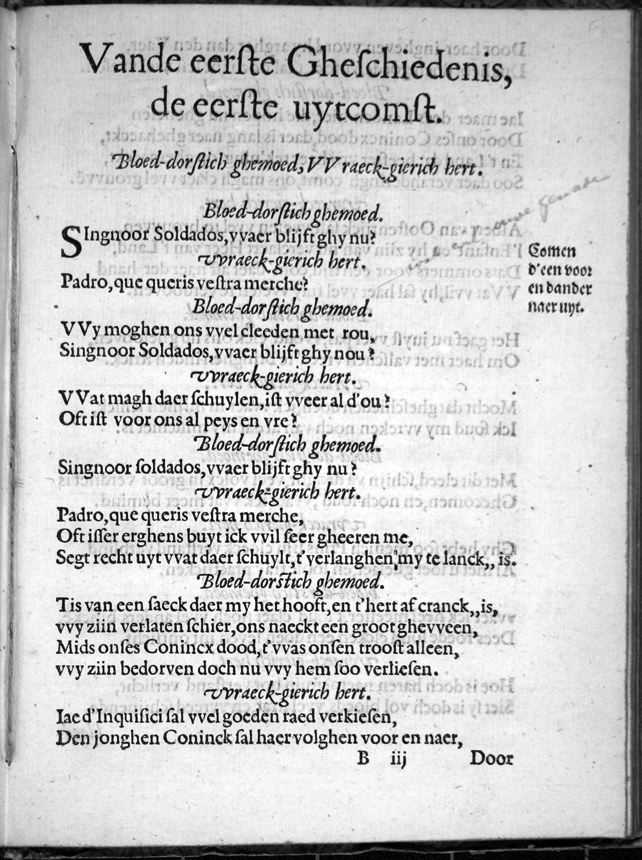 Vande eerſte Gheſchiedenis,
de eerſte uytcomſt.
Bloed-dorſtich ghemoed, VVraeck-gierich hert.
Bloed-dorſtich ghemoed.
SIngnoor Soldados, vvaer blijft ghy nu?
vvraeck-gierich hert.
Padro, que queris veſtra merche?
Bloed-dorſtich ghemoed.
VVy moghen ons vvel cleeden met rou,
Singnoor Soldados, vvaer blijft ghy nou?
vvraeck-gierich hert.
VVat magh daer ſchuylen, iſt vveer al d'ou?
Oft iſt voor ons al peys en vre?
Bloed-dorſtich ghemoed.
Singnoor ſoldados, vvaer blijft ghy nu?
vvraeck-gierich hert.
Padro, que queris veſtra merche,
Oft iſſer erghens buyt ick vvil ſeer gheeren me,
Segt recht uyt vvat daer ſchuylt, t'verlanghen my te lanck,, is.
Bloed-dorſtich ghemoed.
Tis van een ſaeck daer my het hooft, en t'hert af cranck,, is,
vvy ziin verlaten ſchier, ons naeckt een groot ghevveen,
Mids onſes Conincx dood, t'vvas onſen trooſt alleen,
vvy ziin bedorven doch nu vvy hem ſoo verlieſen.
vvraeck-gierich hert.
Iae d'Inquiſici ſal vvel goeden raed verkieſen,
Den jonghen Coninck ſal haer volghen voor en naer,
B iij Door
Comen
d'een voor
en dander
naer uyt.